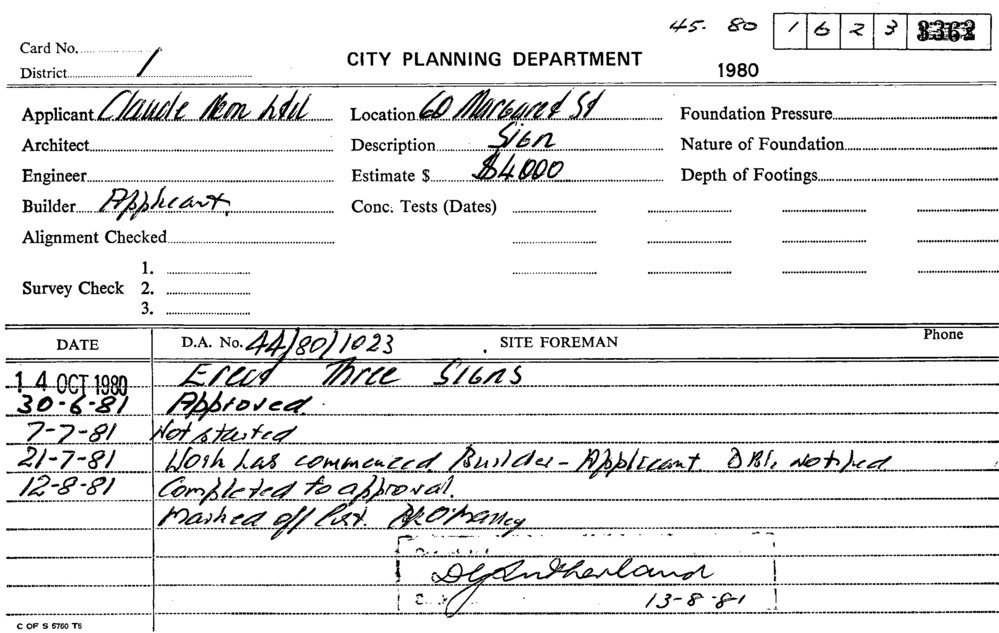 45. 80 1 6 2 3
Card No.
CITY PLANNING DEPARTMENT
District 1
1980
Applicant Claude Neon Ltd Location 60 Margaret St Foundation Pressure
Architect Description Sign Nature of Foundation
Engineer Estimate $ $4000 Depth of Footings
Builder Applicant. Conc. Tests (Dates)
Alignment Checked
1.
Survey Check 2.
3.
DATE D.A. No. 44/80/1023 SITE FOREMAN Phone
14 OCT 1980 Erect Three Signs
30-6-81 Approved.
7-7-81 Not started
21-7-81 Work has commenced. Builder - Applicant. DBI. notified
12-8-81 Completed to approval.
Marked off list.
DG Sutherland
13-8-81
C OF S 5760 T6